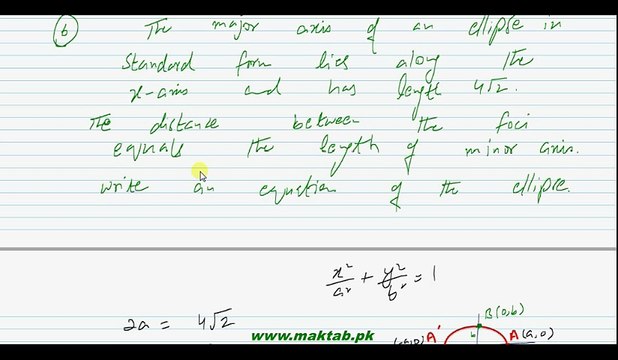 (b) The major axis of an ellipse in
standard form lies along the
x-axis and has length 4√2.
The distance between the foci
equals the length of minor axis.
write an equation of the ellipse.
x²/a² + y²/b² = 1
2a = 4√2
B(0,b)
A' A(a,0)
b
www.maktab.pk